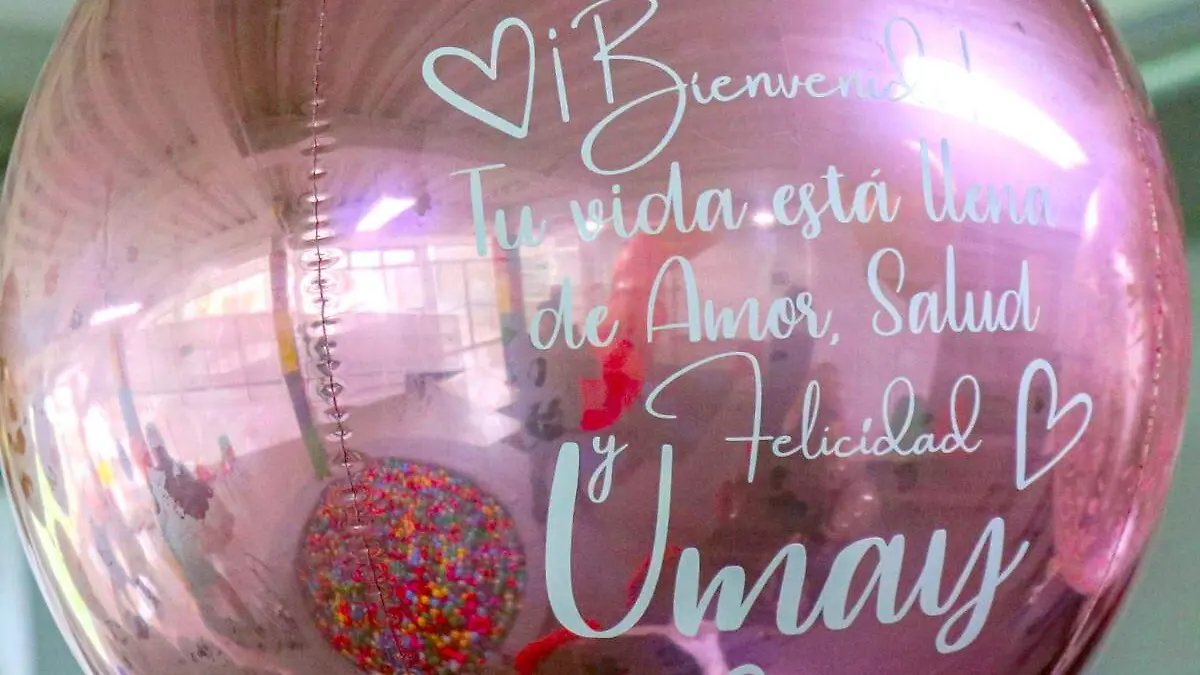 ¡Bienvenid
Tu vida está llena
de Amor, Salud
y Felicidad
Umay